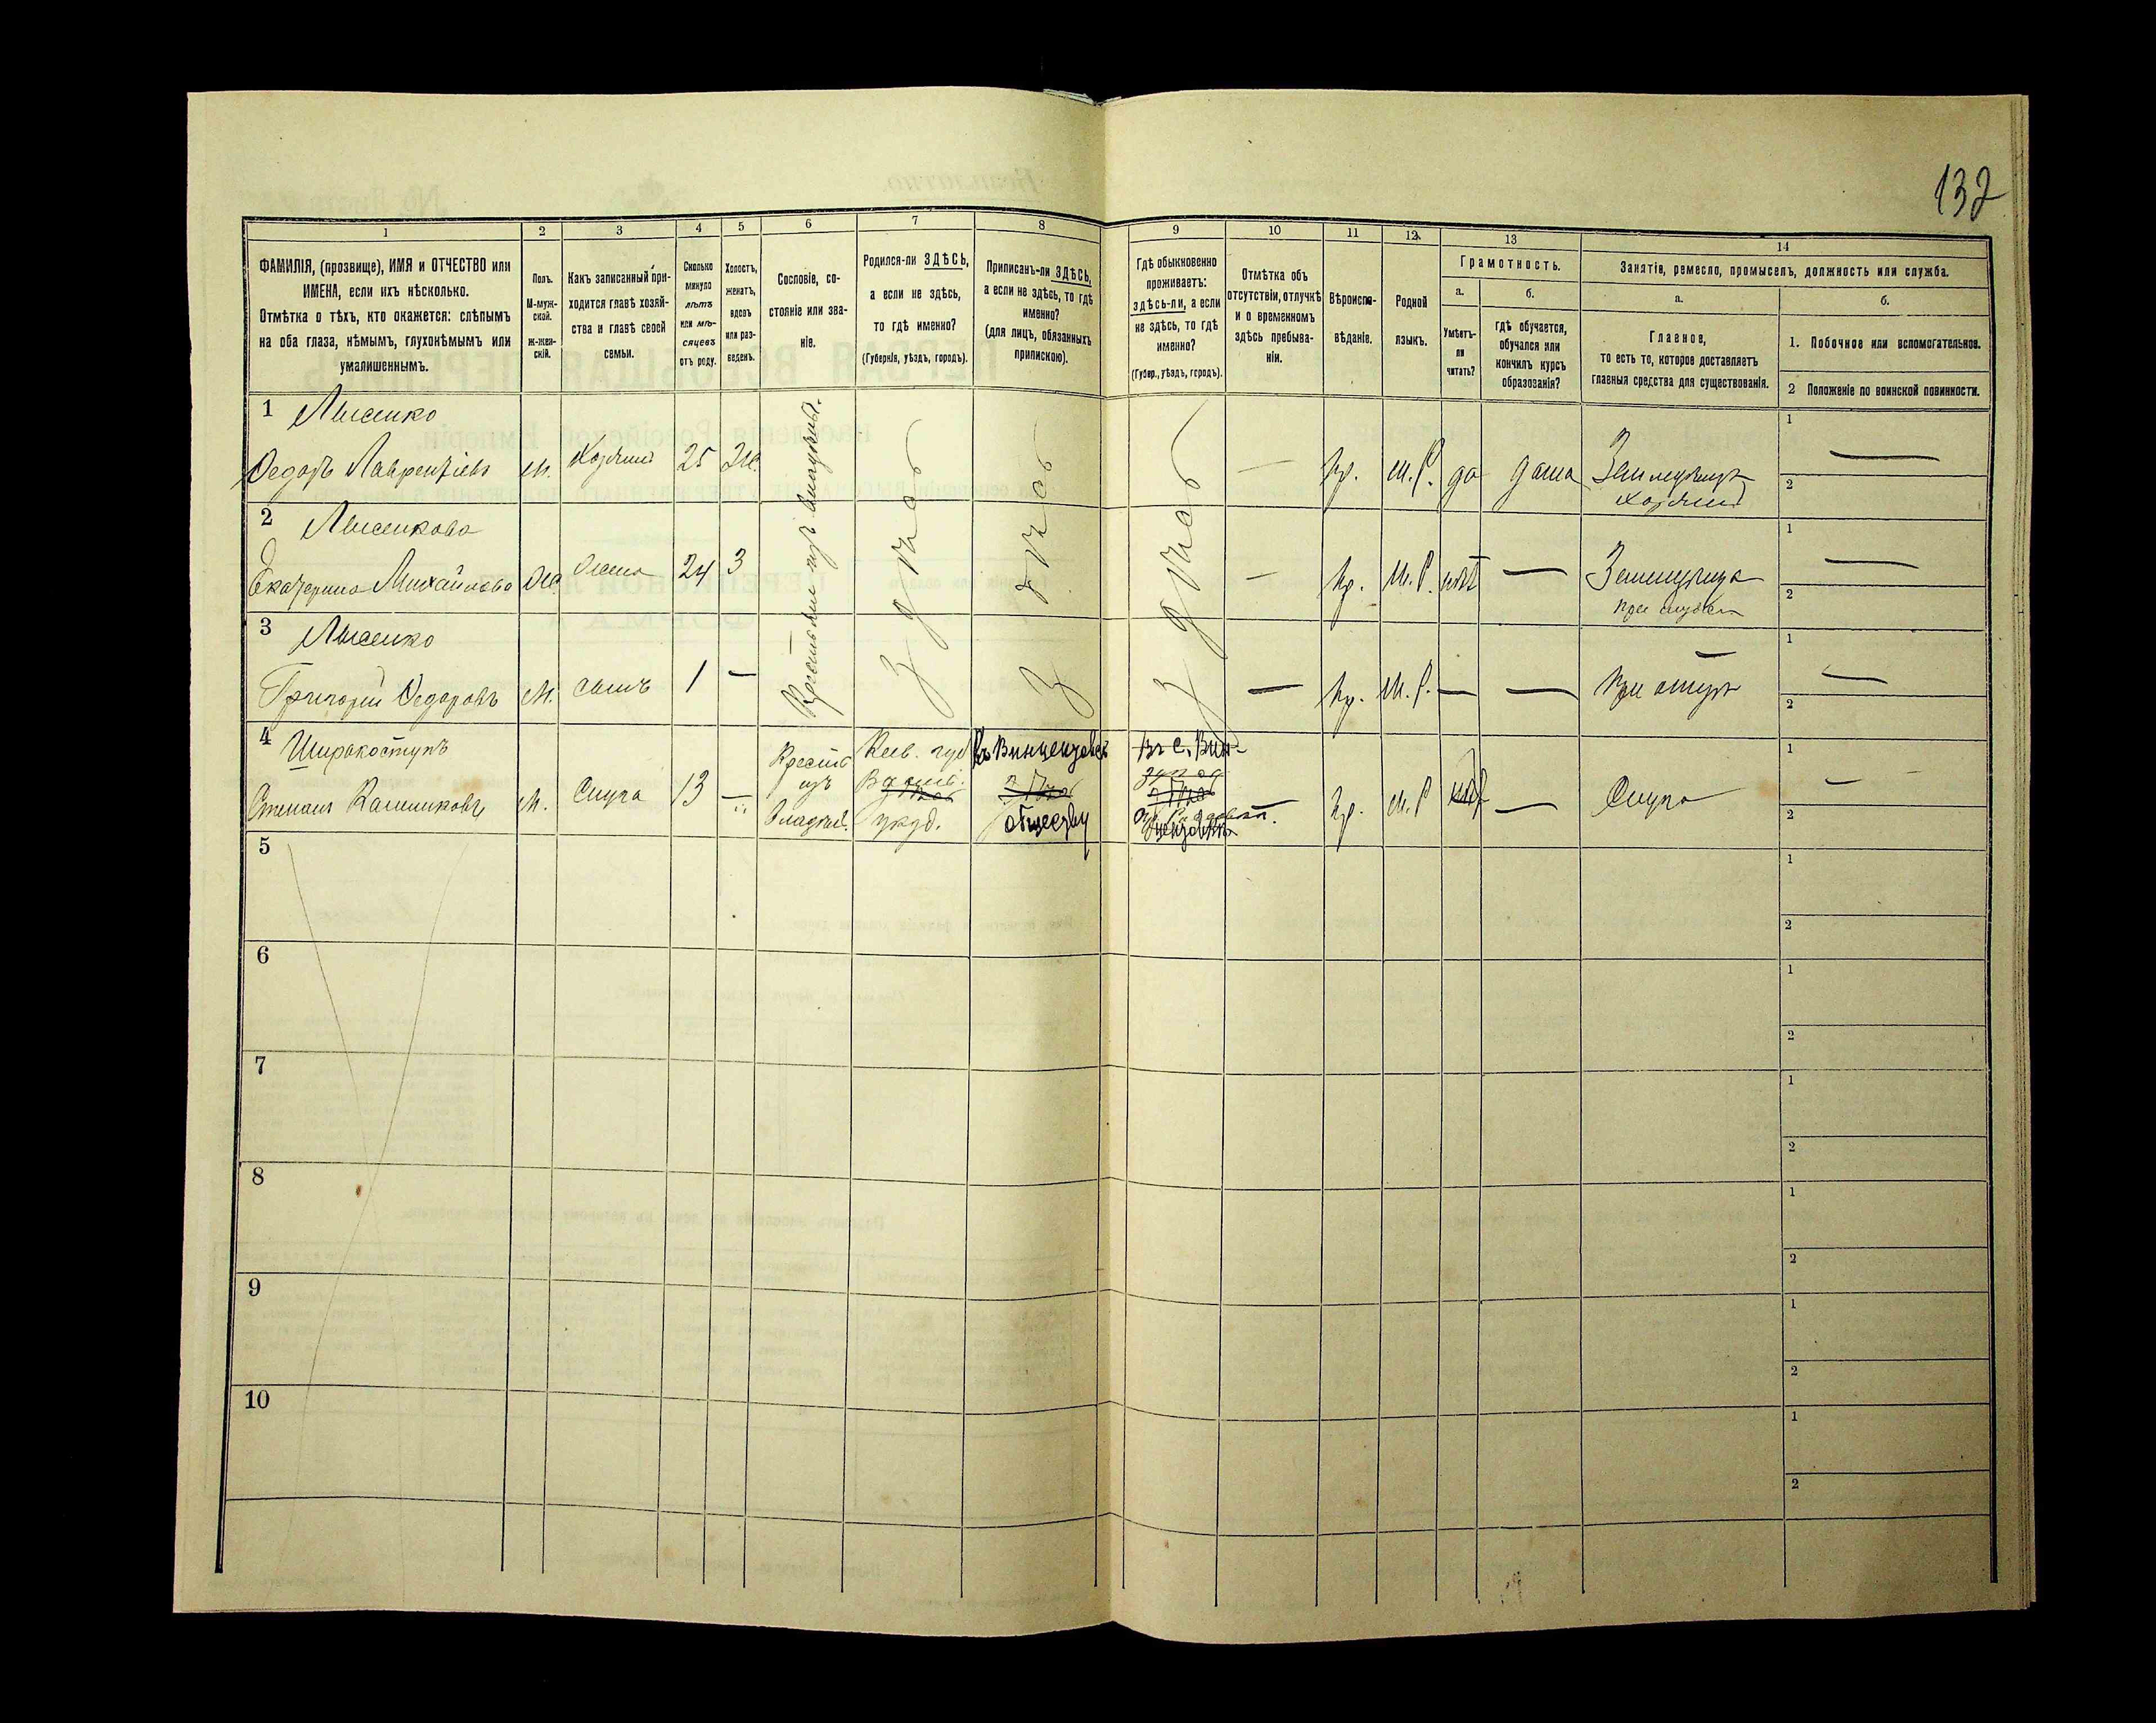 132
1
2
3
4
5
6
7
8
9
10
11
12
13
14
ФАМИЛІЯ, (прозвище), ИМЯ и ОТЧЕСТВО или
ИМЕНА, если ихъ нѣсколько.
Отмѣтка о тѣхъ, кто окажется: слѣпымъ
на оба глаза, нѣмымъ, глухонѣмымъ или
умалишеннымъ.
Полъ.
М-муж-
ской.
ж-жен-
скій.
Какъ записанный при-
ходится главѣ хозяй-
ства и главѣ своей
семьи.
Сколько
минуло
лѣтъ
или мѣ-
сяцевъ
отъ роду.
Холостъ,
женатъ,
вдовъ
или раз-
веденъ.
Сословіе, со-
стояніе или зва-
ніе.
Родился-ли ЗДѢСЬ,
а если не здѣсь,
то гдѣ именно?
(Губернія, уѣздъ, городъ).
Приписанъ-ли ЗДѢСЬ,
а если не здѣсь, то гдѣ
именно?
(для лицъ, обязанныхъ
припискою).
Гдѣ обыкновенно
проживаетъ:
здѣсь-ли, а если
не здѣсь, то гдѣ
именно?
(Губер., уѣздъ, городъ).
Отмѣтка объ
отсутствіи, отлучкѣ
и о временномъ
здѣсь пребыва-
ніи.
Вѣроиспо-
вѣданіе.
Родной
языкъ.
Грамотность.
а.
Умѣетъ-
ли
читать?
б.
гдѣ обучается,
обучался или
кончилъ курсъ
образованія?
Занятія, ремесло, промыселъ, должность или служба.
а.
Главное,
то есть то, которое доставляетъ
главныя средства для существованія.
б.
1. Побочное или вспомогательное.
2 Положеніе по воинской повинности.
1 Лысенко
Федоръ Лаврентіевъ м. Хозяинъ 25 Ж. здѣсь здѣсь здѣсь — пр. м.р. да дома Земледѣлецъ
хозяинъ
1 —
2
2 Лысенкова
Екатерина Михайлова Ж. жена 24 З — пр. м.р. нѣтъ —
при мужѣ
1 —
2
3 Лысенко
Григорій Федоровъ м. сынъ 1 — — пр. м.р. — — при отцѣ
1 —
2
4 Широкоступъ
Степанъ м. Слуга 13 — Крестьян
изъ
владѣл. Кіев. губ
уѣзд. Къ Винцентовск
обществу Въ с. Вин-
центовкѣ пр. м.р. нѣтъ — Слуга
1 —
2
5
1
2
6
1
2
7
1
2
8
1
2
9
1
2
10
1
2